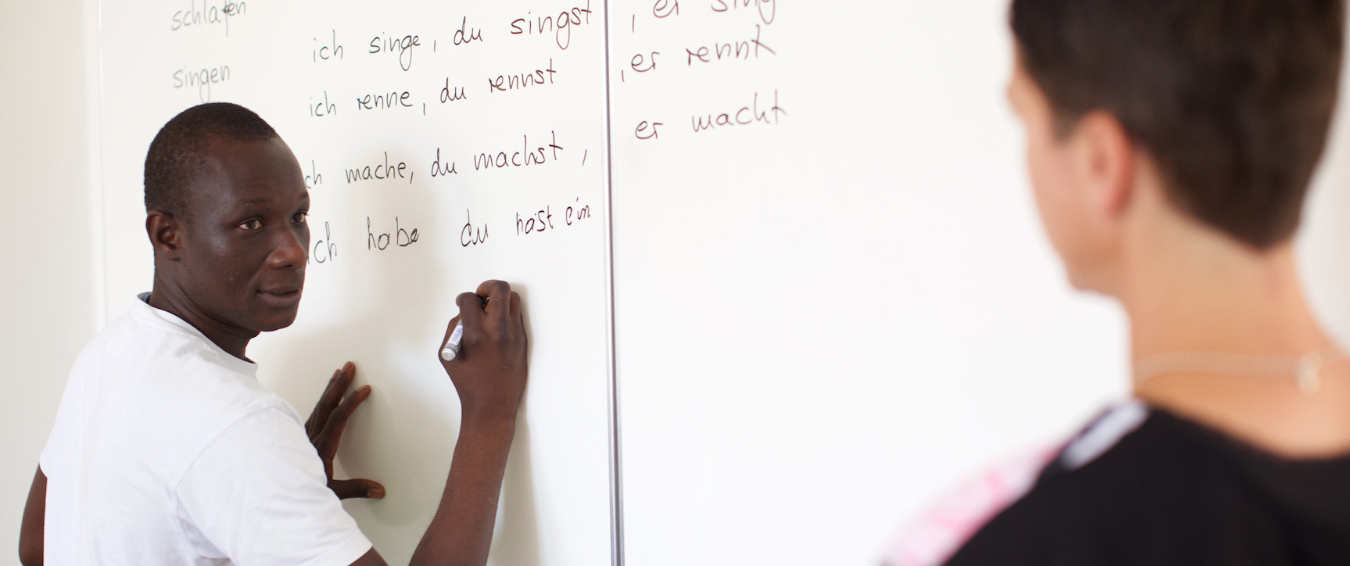 schlafen
ich singe, du singst, er sing
singen
ich renne, du rennst, er rennt
ch mache, du machst, er macht
ich habe du hast ein